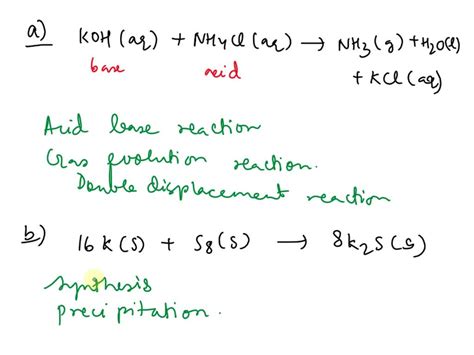 a) KOH (aq) + NH4Cl (aq) → NH3 (g) + H2O(l)
base acid + KCl (aq)
Acid base reaction
Gas evolution reaction.
Double displacement reaction
b) 16 K (s) + S8 (s) → 8K2S (s)
synthesis
precipitation.